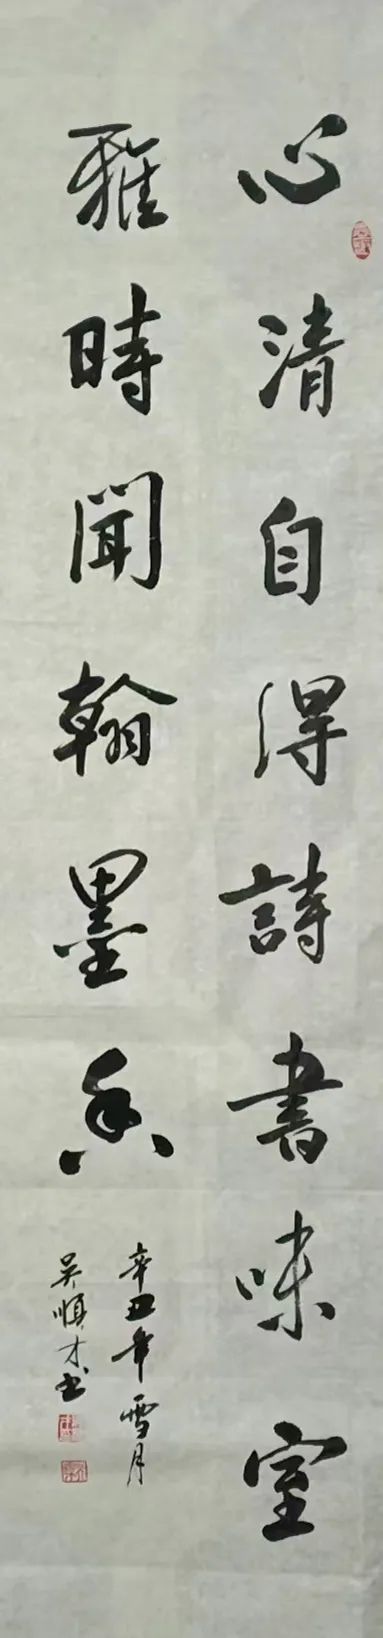 心清自得詩書味室
雅時聞翰墨香
辛丑年雪月
吳順才书